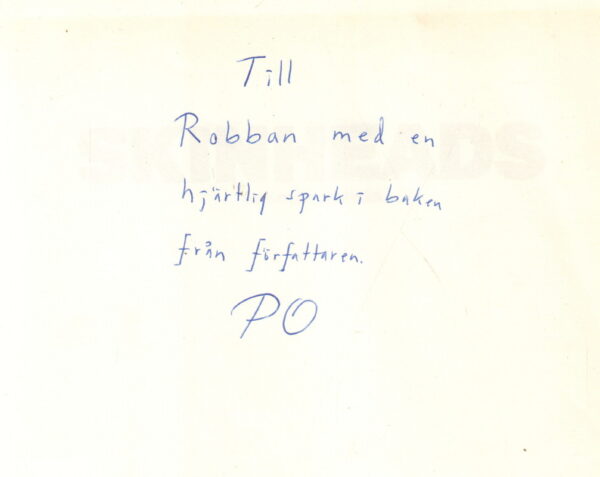 Till
Robban med en
hjärtlig spark i baken
från författaren.
PO